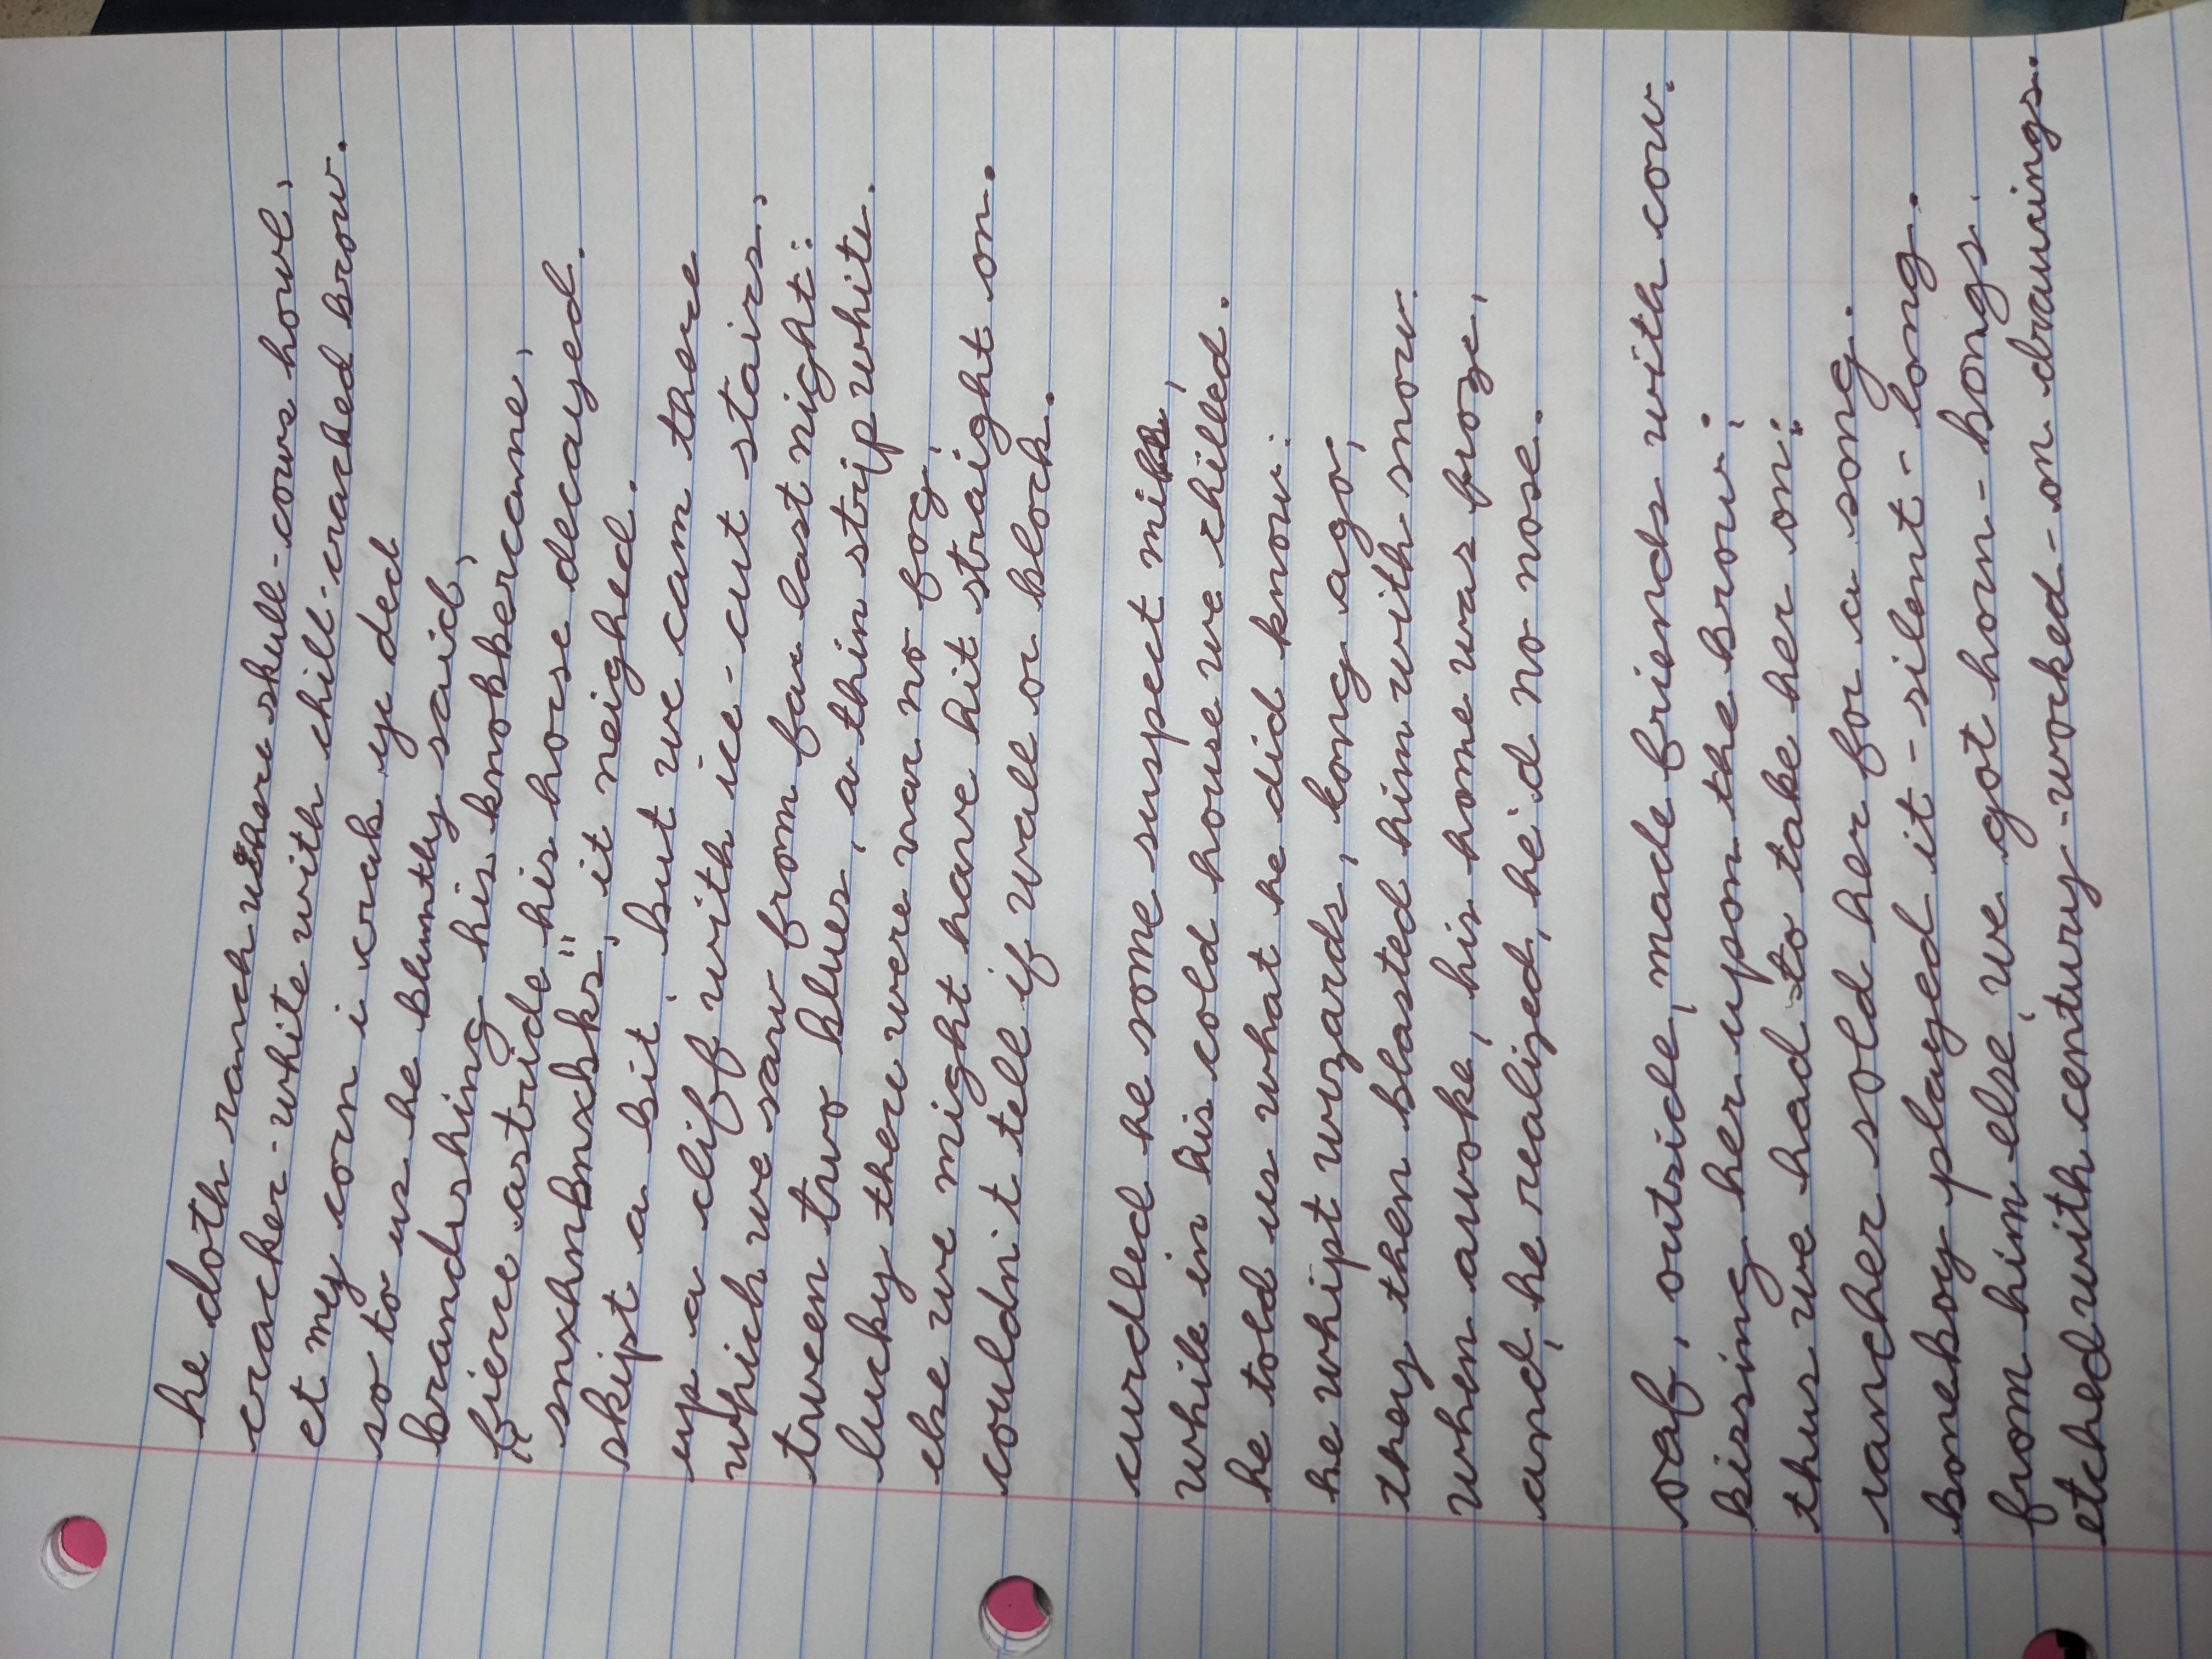 he doth ranch where skull-cows howl,
cracker-white with chill-cracked brow.
et my corn i crak ye ded
so to us he bluntly said,
brandishing his knobbercane,
fierce astride his horse decayed.
"snxhnbnxbks", it neighed.
skipt a bit, but we cam there
up a cliff with ice-cut stairs,
which we saw from far last night:
tween two blues, a thin strip white.
lucky there were nar no fog,
else we might have hit straight on.
couldn't tell if wall or block.

curdled he some suspect milk,
while in his cold house we chilled.
he told us what he did know:
he whipt wzards, long ago,
they then blasted him with snow.
when awoke, his home was froze,
and, he realized, he'd no nose.

oaf, outside, made friends with cow.
kissing her upon the brow;
thus we had to take her on:
rancher sold her for a song.
boneboy played it-silent-long.
from him else, we got horn-bongs.
etched with century-worked-on drawings.